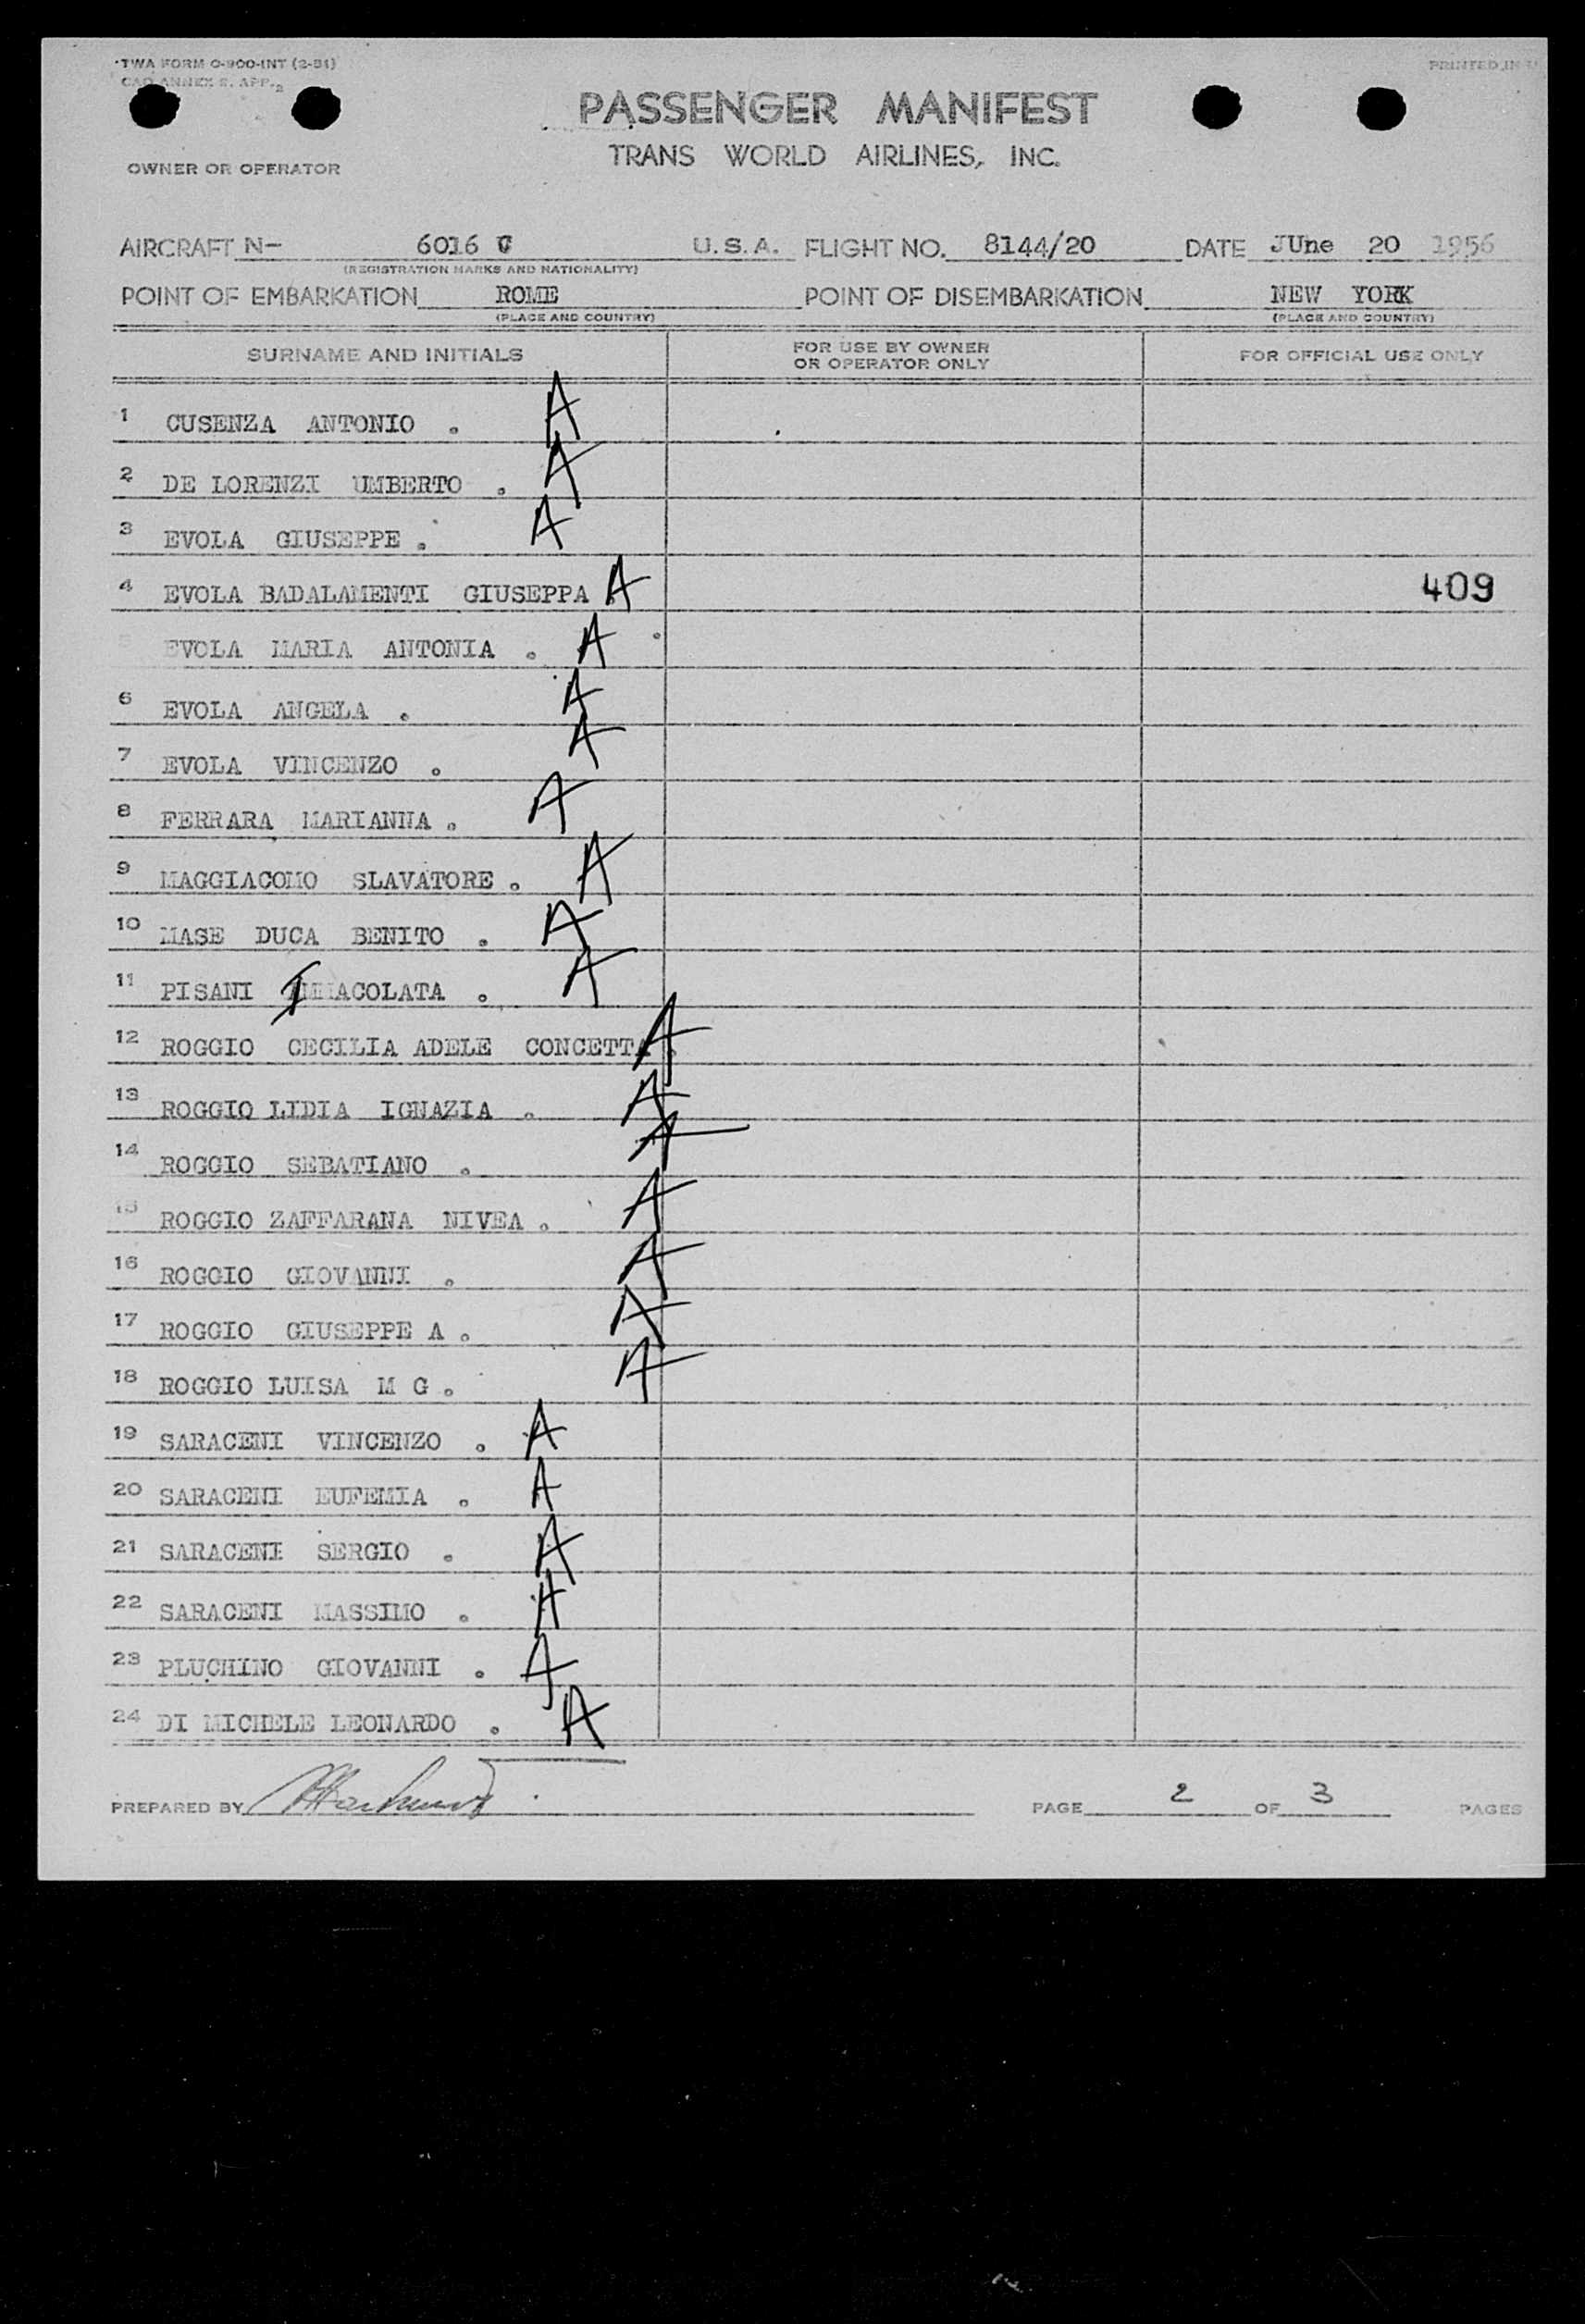 TWA FORM O-900-INT (2-51)
CAO ANNEX 9, APP. 2
PRINTED IN U
PASSENGER MANIFEST
TRANS WORLD AIRLINES, INC.
OWNER OR OPERATOR
AIRCRAFT N- 6016 C U.S.A. FLIGHT NO. 8144/20 DATE JUne 20 1956
(REGISTRATION MARKS AND NATIONALITY)
POINT OF EMBARKATION ROME POINT OF DISEMBARKATION NEW YORK
(PLACE AND COUNTRY) (PLACE AND COUNTRY)
SURNAME AND INITIALS FOR USE BY OWNER OR OPERATOR ONLY FOR OFFICIAL USE ONLY
1 CUSENZA ANTONIO . A
2 DE LORENZI UMBERTO . A
3 EVOLA GIUSEPPE . A
4 EVOLA BADALAMENTI GIUSEPPA A 409
5 EVOLA MARIA ANTONIA . A
6 EVOLA ANGELA . A
7 EVOLA VINCENZO . A
8 FERRARA MARIANNA . A
9 MAGGIACOMO SLAVATORE . A
10 MASE DUCA BENITO . A
11 PISANI IMMACOLATA . A
12 ROGGIO CECILIA ADELE CONCETTA . A
13 ROGGIO LIDIA IGNAZIA . A
14 ROGGIO SEBATIANO . A
15 ROGGIO ZAFFARANA NIVEA . A
16 ROGGIO GIOVANNI . A
17 ROGGIO GIUSEPPE A . A
18 ROGGIO LUISA M G . A
19 SARACENI VINCENZO . A
20 SARACENI EUFEMIA . A
21 SARACENI SERGIO . A
22 SARACENI MASSIMO . A
23 PLUCHINO GIOVANNI . A
24 DI MICHELE LEONARDO . A
PREPARED BY PAGE 2 OF 3 PAGES